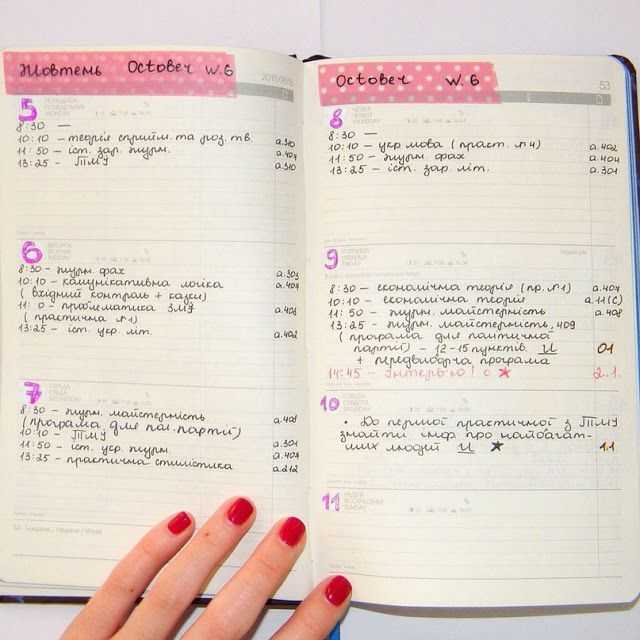 Жовтень October w.6
5
8:30 —
10:10 – теорія сприйм. та роз. тв. а.310
11:50 – іст. зар. журн. а.404
13:25 – ТМУ а.310
6
8:30 – журн. фах а.303
10:10 – комунікативна логіка а.404
( вхідний контроль + казки)
11: 0 – проблематика ЗМУ а.408
( практична №1)
13:25 – іст. укр. літ. а.402
7
8:30 – журн. майстерність а.408
( програма для пол. партії)
10:10 – ТМУ
11:50 – іст. укр. журн. а.301
13:25 – практична стилістика а.404
а.212
October w.6
53
8
8:30 —
10:10 – укр мова ( практ. №4) а.402
11:50 – журн. фах а.404
13:25 – іст. зар. літ. а.301
9
8:30 – економічна теорія ( пр. №1) а.404
10:10 – економічна теорія а.11(С)
11:50 – журн. майстерність а.408
13:25 – журн. майстерність, 409
( програма для політичної
партії) – 12-15 пунктів. 01
+ передвиборча програма
14:45 – Інтерв'ю! с ★ 2.1.
10
• До першої практичної з ТМУ
знайти інф про найбагат-
ших людей ★ 1.1
11